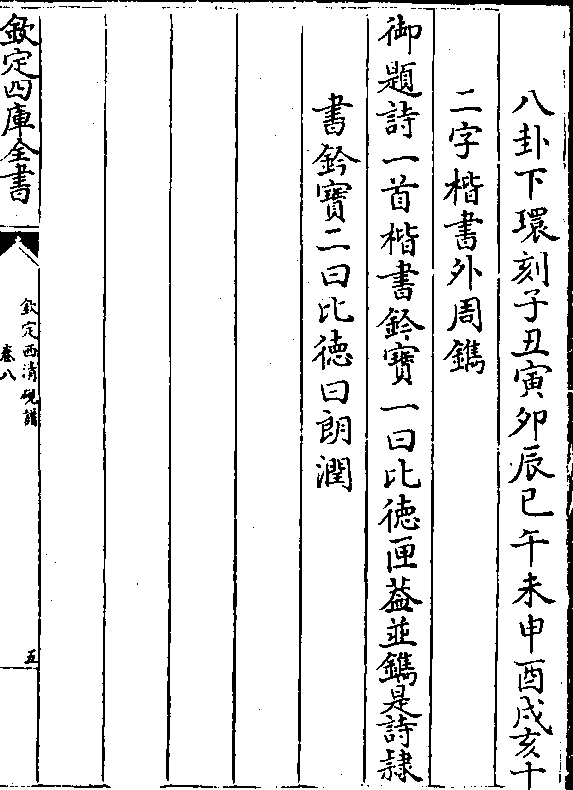 八卦下環刻子丑寅卯辰巳午未申酉戌亥十
二字楷書外周鐫
御題詩一首楷書鈐寶一曰比德匣葢並鐫是詩隸
書鈐寶二曰比德曰朗潤
欽定四庫全書
欽定西清硯譜
卷八
五